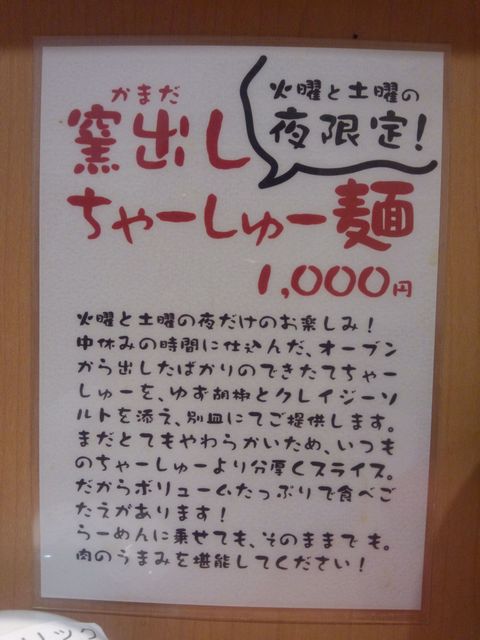 火曜と土曜の
夜限定!
かまだ
窯出し
ちゃーしゅー麺
1,000円
火曜と土曜の夜だけのお楽しみ!
中休みの時間に仕込んだ、オーブン
から出したばかりのできたてちゃー
しゅーを、ゆず胡椒とクレイジーソ
ルトを添え、別皿にてご提供します。
まだとてもやわらかいため、いつも
のちゃーしゅーより分厚くスライス。
だからボリュームたっぷりで食べご
たえがあります!
らーめんに乗せても、そのままでも。
肉のうまみを堪能してください!